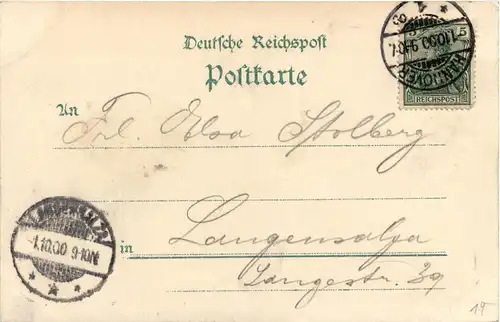 Deutsche Reichspost
Postkarte
5
REICHSPOST
HANNOVER
1.10.00 9-10V
An
Frl. Elsa Stolberg
LANGENSALZA
-1.10.00 9-10N
in
Langensalza
Langestr. 39